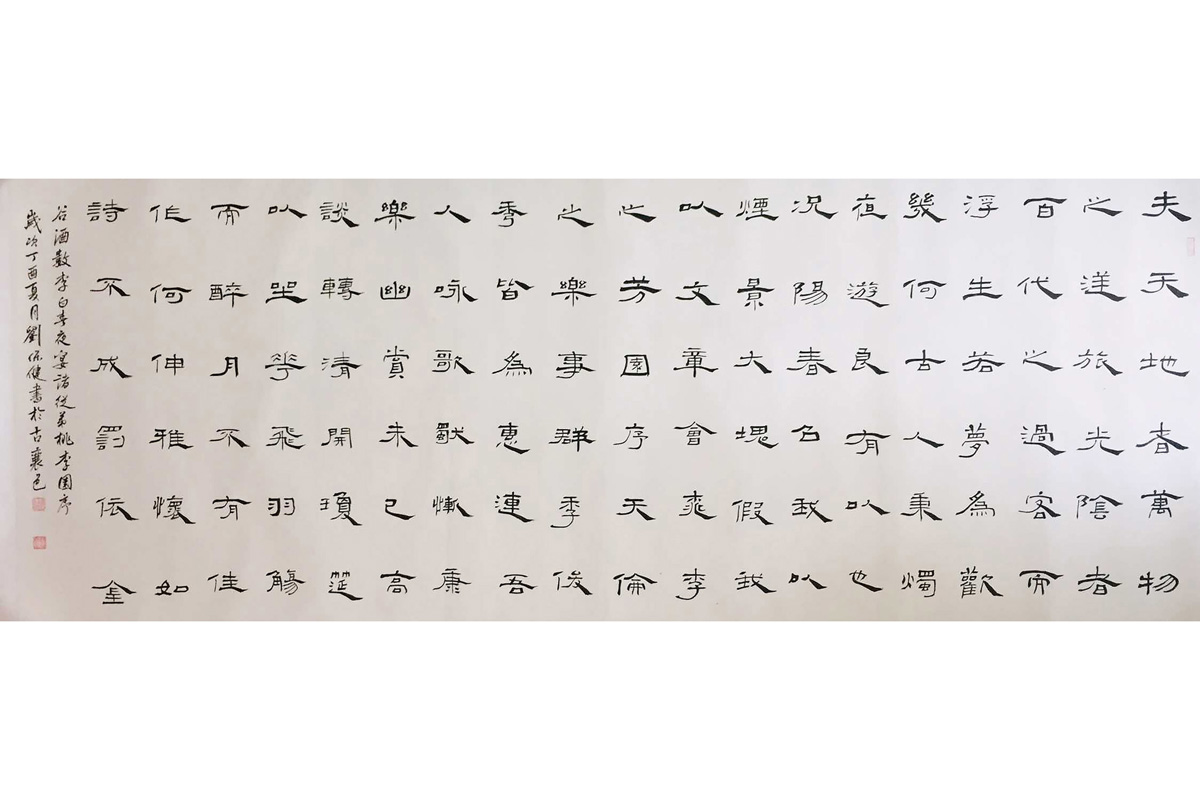 夫天地者萬物
之逆旅光陰者
百代之過客而
浮生若夢為歡
幾何古人秉燭
夜遊良有以也
況陽春召我以
煙景大塊假我
以文章會桃李
之芳園序天倫
之樂事群季俊
秀皆為惠連吾
人咏歌獨慚康
樂幽賞未已高
談轉清開瓊筵
以坐花飛羽觴
而醉月不有佳
作何伸雅懷如
詩不成罰依金
谷酒數李白春夜宴諸從弟桃李園序
歲次丁酉夏月劉保健書於古襄邑